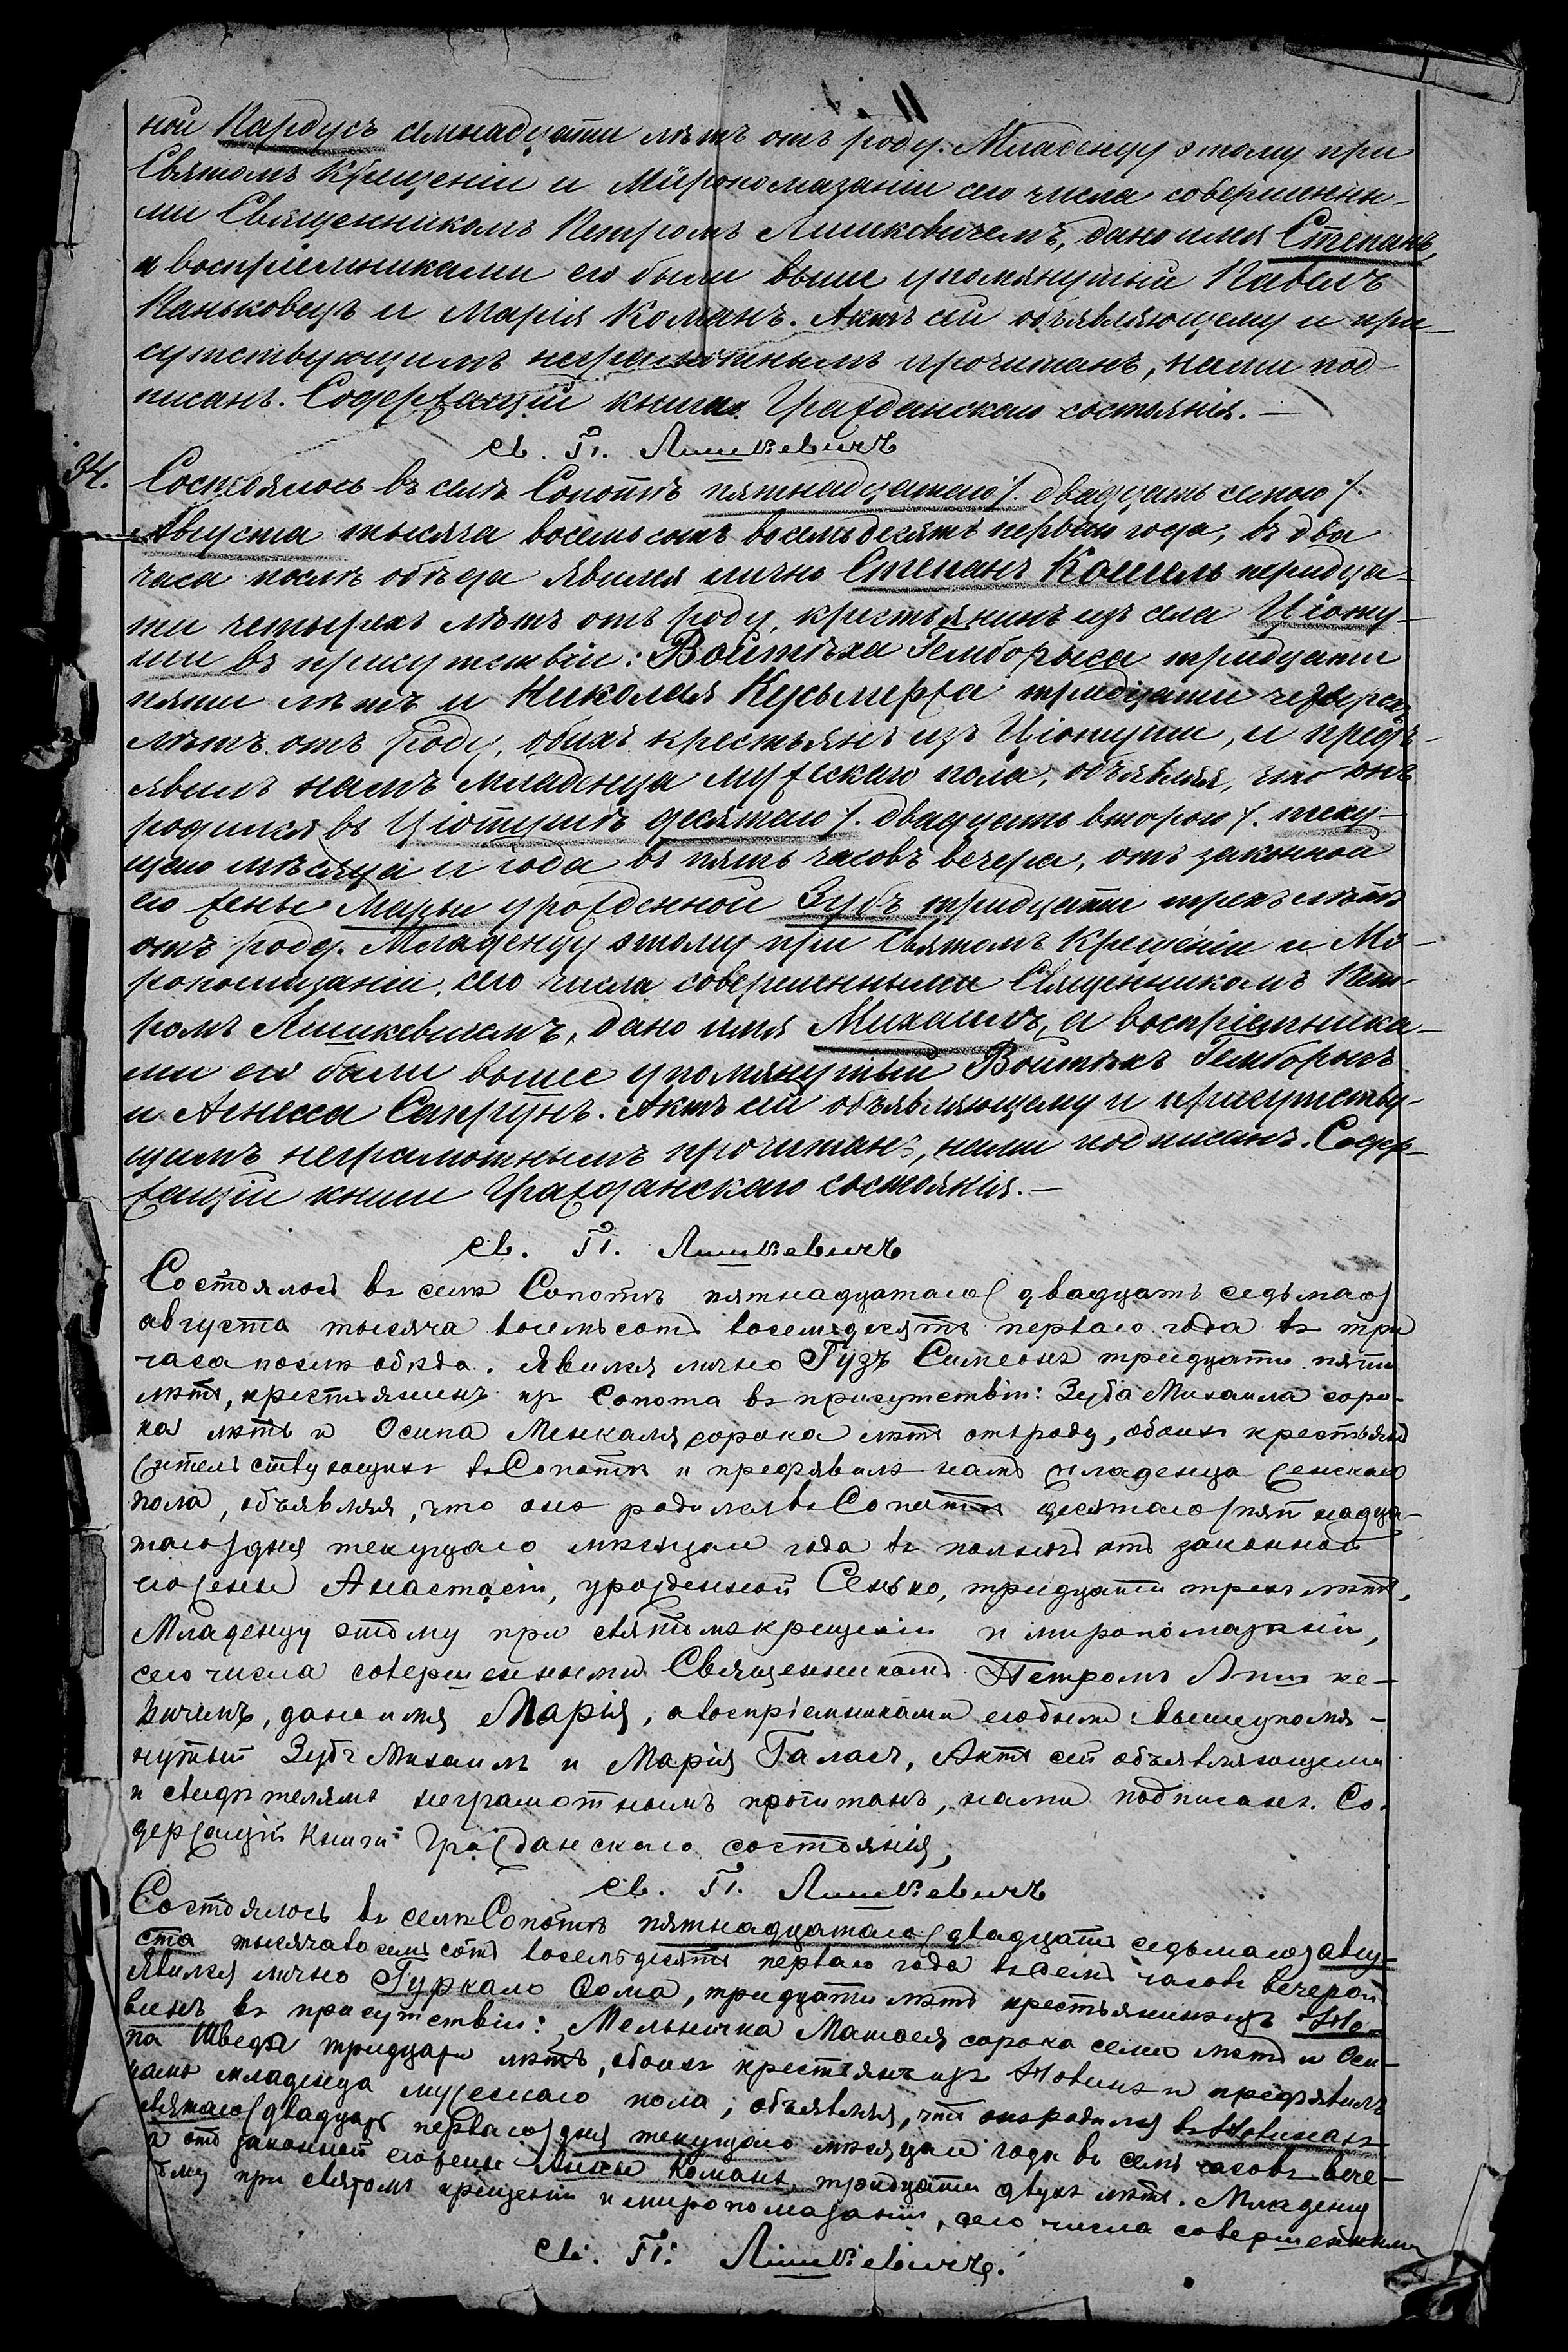 ной Кардусъ семнадцати лѣтъ отъ роду. Младенцу этому при
Святомъ Крещеніи и Мѵропомазаніи сего числа совершенны-
ми Священникомъ Петромъ Лишкевичемъ, дано имя Степанъ,
а воспріемниками его были выше упомянутый Павелъ
Паньковецъ и Марія Команъ. Актъ сей объявляющему и при-
сутствующимъ неграмотнымъ прочитанъ, нами под-
писанъ. Содержащій книги Гражданскаго состоянія. —
св. П. Лишкевичъ
94. Состоялось въ селѣ Сопотѣ пятнадцатаго /. двадцать седмого /.
Августа тысяча восемьсотъ восемьдесятъ перваго года, въ два
часа послѣ обѣда явился лично Степанъ Кошель тридца-
ти четырехъ лѣтъ отъ роду, крестьянинъ изъ села Ціоту-
ши въ присутствіи: Войтѣха Гемборыса тридцати
пяти лѣтъ и Николая Кусьмержа тридцати четырехъ
лѣтъ отъ роду, обихъ крестьянъ изъ Ціотуши, и предъ-
явилъ намъ младенца мужескаго пола, объявляя, что онъ
родился въ Ціотушѣ десятаго /. двадцать второго /. теку-
щаго мѣсяца и года въ пять часовъ вечера, отъ законной
его жены Марьи урожденной Зубъ тридцати трехъ лѣтъ
отъ роду. Младенцу этому при Святомъ Крещеніи и Мѵ-
ропомазаніи, сего числа совершенными Священникомъ Пет-
ромъ Лишкевичемъ, дано имя Михаилъ, а воспріемника-
ми его были выше упомянутый Войтѣхъ Гемборысъ
и Агнеса Сапрунъ. Актъ сей объявляющему и присутству-
щимъ неграмотнымъ прочитанъ, нами подписанъ. Содер-
жащій книги Гражданскаго состоянія. —
св. П. Лишкевичъ
Состоялось въ селѣ Сопотѣ пятнадцатаго (двадцать седьмаго)
августа тысяча восемьсотъ восемьдесятъ перваго года въ три
часа послѣ обѣда. Явился лично Гузъ Симеонъ тридцати пяти
лѣтъ, крестьянинъ изъ Сопота въ присутствіи: Зуба Михаила соро-
ка лѣтъ и Осипа Менкаля сорока лѣтъ отъ роду, обоихъ крестьянъ
жительствующихъ въ Сопотѣ и предъявилъ намъ младенца женскаго
пола, объявляя, что оно родился въ Сопотѣ десятаго (
таго) дня текущаго мѣсяца и года въ полночь отъ законной
его жены Анастасіи, урожденной Сенько, тридцати трехъ лѣтъ,
Младенцу этому при святомъ крещеніи и миропомазаніи,
сего числа совершенными Священникомъ Петромъ Лишке-
вичемъ, дано имя Марія, а воспріемниками его были вышеупомя-
нутый Зубъ Михаилъ и Марія Галасъ, Актъ сей объявляющему
и свидѣтелямъ неграмотнымъ прочитанъ, нами подписанъ. Со-
держащій книги Гражданскаго состоянія,
св. П. Лишкевичъ
Состоялось въ селѣ Сопотѣ пятнадцатаго (двадцать седьмаго) авгу-
ста тысяча восемьсотъ восемьдесятъ перваго года въ семь часовъ вечерой
Явился лично Гуркало Ѳома, тридцати лѣтъ крестьянинъ изъ Но-
винъ въ присутствіи: Мельничка Матвея сорока семи лѣтъ и Оси-
па Шведа тридцати лѣтъ, обоихъ крестьянъ изъ Новинъ и предъявилъ
намъ младенца мужескаго пола, объявляя, что оно родился въ Новинахъ
девятаго (двадцать перваго) дня текущаго мѣсяца и года въ семь часовъ вече-
а отъ законной его жены Команъ, тридцати двухъ лѣтъ. Младенцу
тому при святомъ крещеніи и миропомазаніи, сего числа совершенными
св. П. Лишкевичъ.